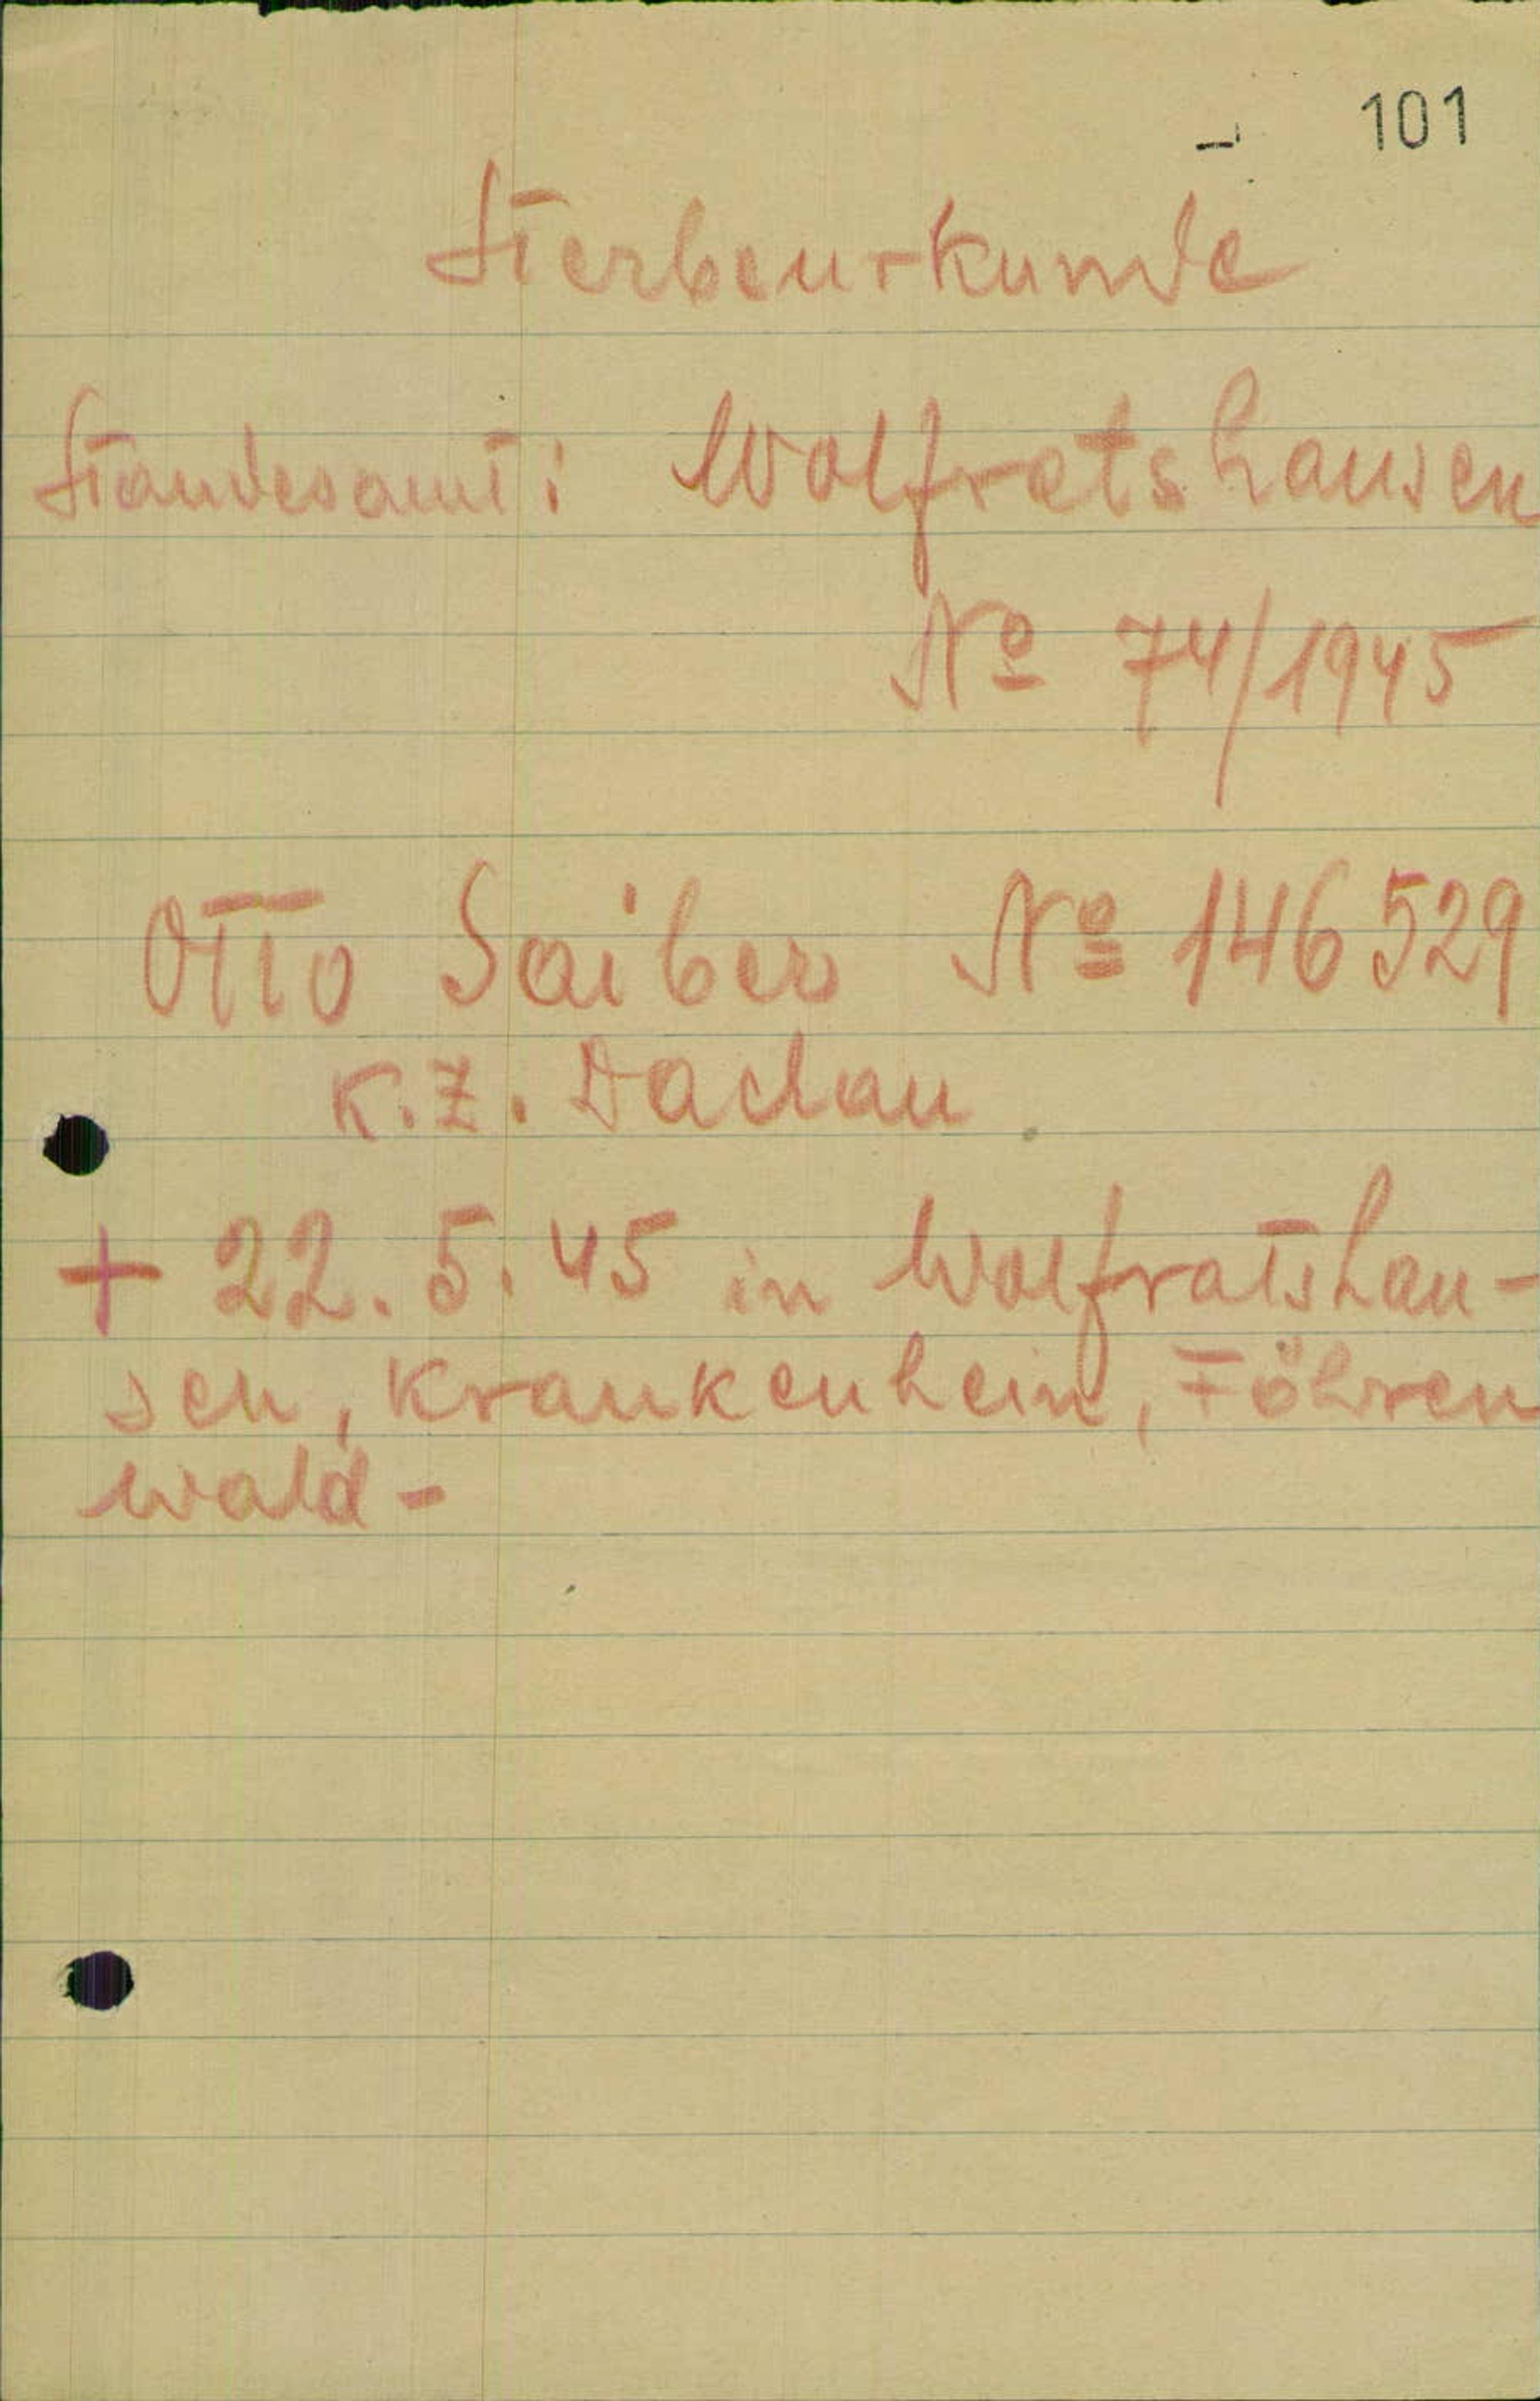 101
Sterbeurkunde
Standesamt: Wolfratshausen
Nº 74/1945
Otto Saiber Nº 146529
K.Z. Dachau
+ 22.5.45 in Wolfratshau-
sen, Krankenheim, Föhren
wald -